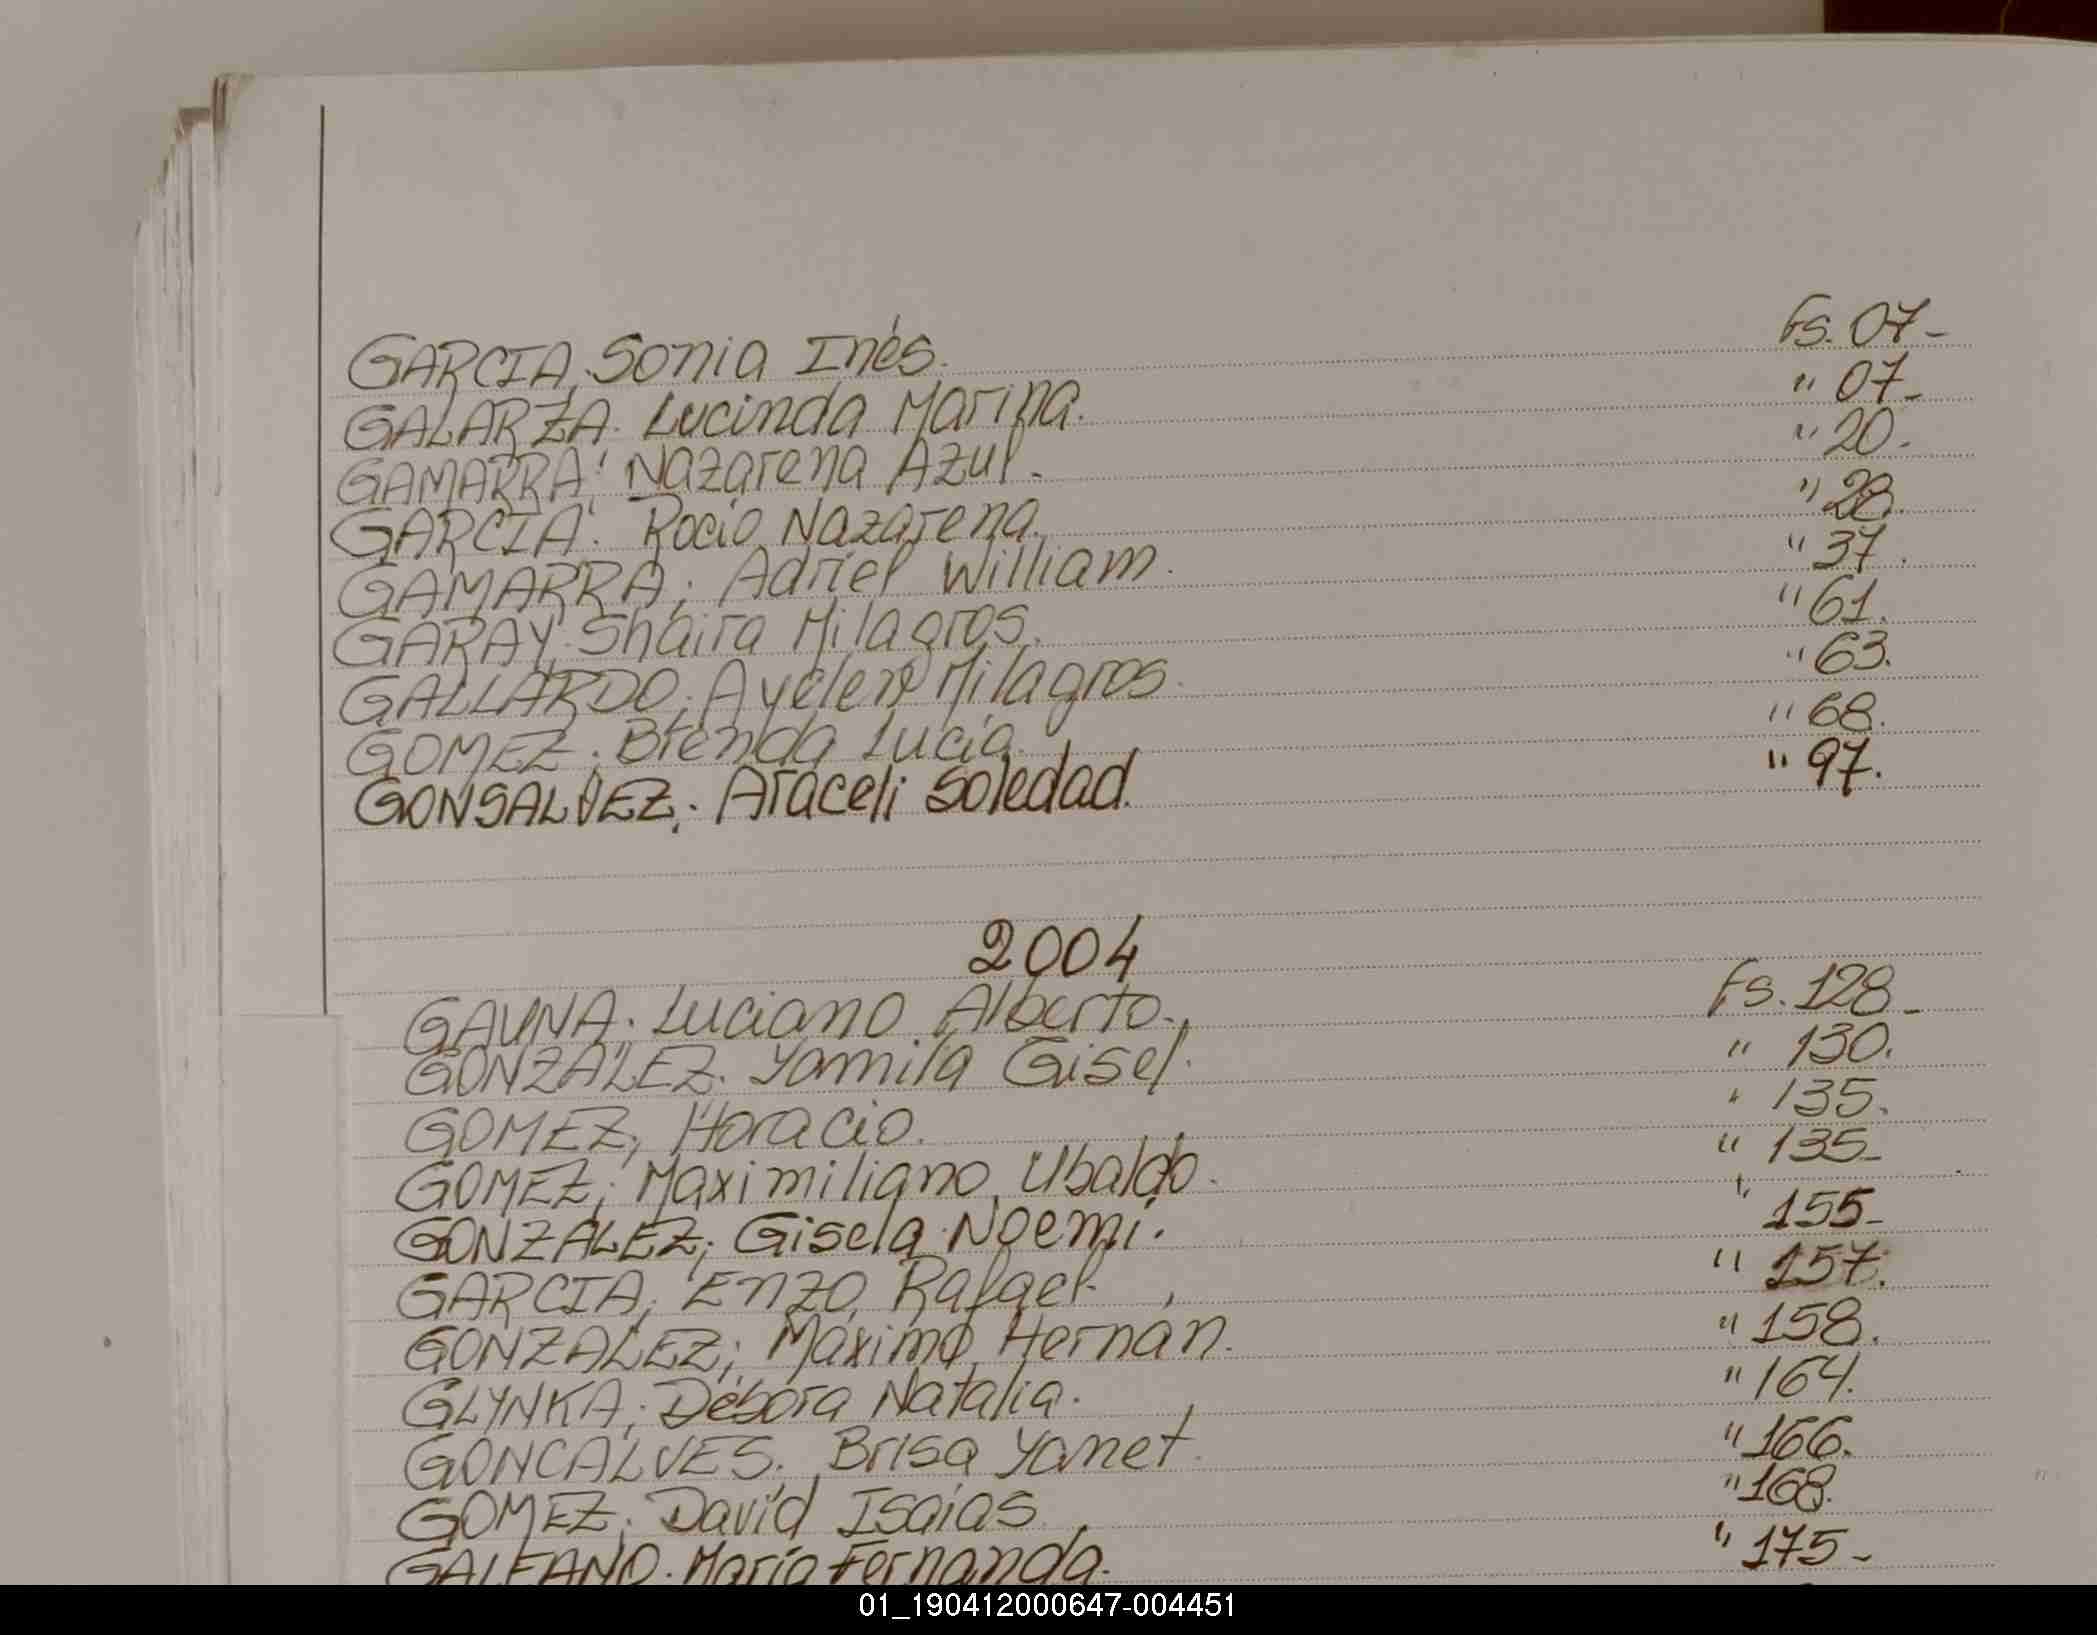 GARCIA, Sonia Inés. Fs. 07-
GALARZA. Lucinda Marina. " 07-
GAMARRA; Nazarena Azul. " 20.
GARCIA. Rocio Nazarena. " 28.
GAMARRA; Adriel William. " 37.
GARAY. Shaira Milagros. " 61.
GALLARDO. Ayelen Milagros. " 63.
GOMEZ; Brenda Lucia. " 68.
GONSALVEZ; Araceli Soledad. " 97.
2004
GAUNA. Luciano Alberto. Fs. 128-
GONZALEZ. Yamila Gisel. " 130.
GOMEZ, Horacio. " 135.
GOMEZ; Maximiliano Ubaldo. " 135-
GONZALEZ; Gisela Noemí. " 155-
GARCIA; Enzo Rafael. " 157.
GONZALEZ; Máximo Hernán. " 158.
GLYNKA; Débora Natalia. " 164.
GONCALVES. Brisa Yanet. " 166.
GOMEZ. David Isaias. " 168.
GALEANO. María Fernanda. " 175-
01_190412000647-004451